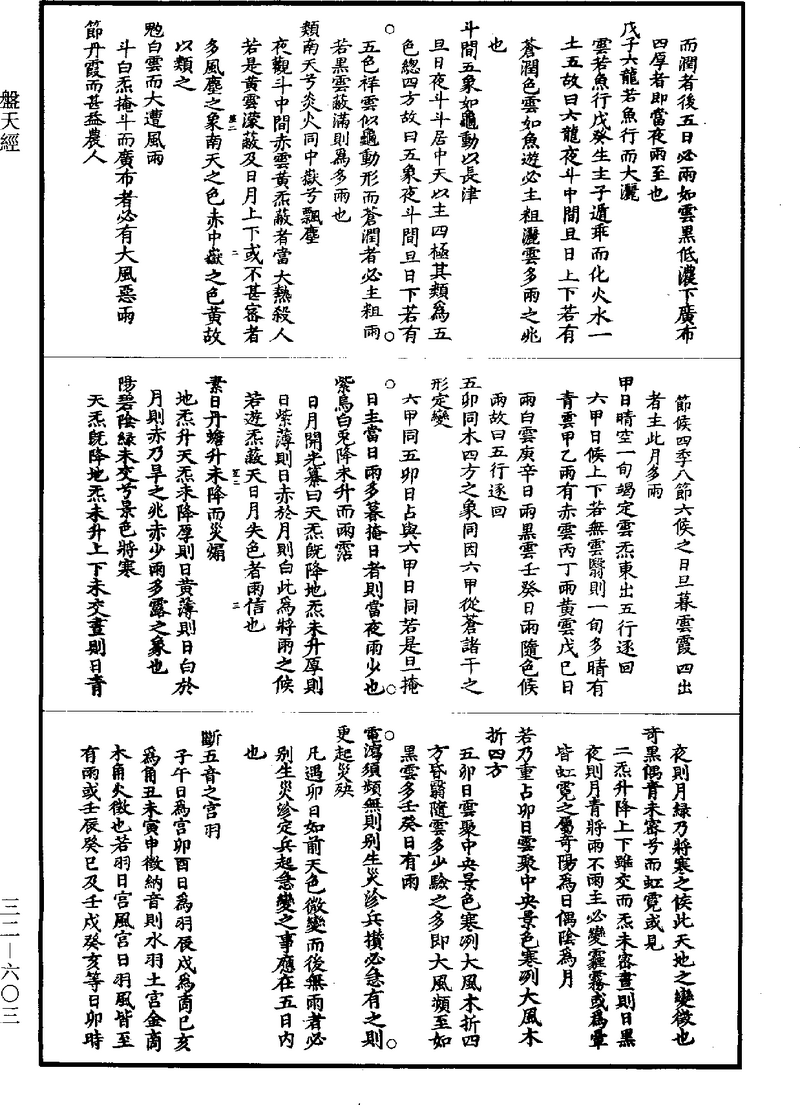 而潤者後五日必雨如雲黑低濃下廣布
四厚者即當夜雨至也
戊子六龍若魚行而大灑
雲若魚行戊癸生主子遁乖而化火水一
土五故曰六龍夜斗中間旦日上下若有
蒼潤色雲如魚遊必主粗灑雲多雨之兆
也
斗間五象如龜動以長津
旦日夜斗斗居中天以主四極其類為五
色總四方故曰五象夜斗間旦日下若有
五色祥雲似龜動形而蒼潤者必主粗雨
若黑雲蔽滿則為多雨也
類南天兮炎火同中嶽兮飄塵
夜觀斗中間赤雲黃炁蔽者當大熱殺人
若是黃雲濛蔽及日月上下或不甚審者
多風塵之象南天之色赤中嶽之色黃故
以類之
勉白雲而大遭風雨
斗白炁掩斗而廣布者必有大風惡雨
節丹霞而甚益農人
節候四季八節六候之日旦暮雲霞四出
者主此月多雨
甲日晴空一旬竭定雲炁東出五行逐回
六甲日候上下若無雲翳則一旬多晴有
青雲甲乙雨有赤雲丙丁雨黃雲戊己日
雨白雲庚辛日雨黑雲壬癸日雨隨色候
雨故曰五行逐回
五卯同木四方之象同因六甲從蒼諸干之
形定變
六甲同五卯日占與六甲日同若是旦掩
日主當日雨多暮掩日者則當夜雨少也
紫烏白兎降未升而雨露
日月開光纂曰天炁既降地炁未升厚則
日紫薄則日赤於月則白此為將雨之候
若遊炁蔽天日月失色者雨信也
素日丹蟾升未降而災媚
地炁升天炁未降厚則日黃薄則日白於
月則赤乃旱之兆赤少雨多露之象也
陽碧陰綠未交兮景色將寒
天炁既降地炁未升上下未交晝則日青
夜則月綠乃將寒之候此天地之變徵也
奇黑偶青未密兮而虹霓或見
二炁升降上下雖交而炁未密晝則日黑
夜則月青將雨不雨主必變霾霧或為暈
皆虹霓之屬奇陽為日偶陰為月
若乃重占卯日雲聚中央景色寒冽大風木
折四方
五卯日雲聚中央景色寒冽大風木折四
方昏翳隨雲多少驗之多即大風頻至如
黑雲多壬癸日有雨
電瀉須頻無則別生災沴兵攢必急有之則
更起災殃
凡遇卯日如前天色微變而後無雨者必
別生災沴定兵起急變之事應在五日內
也
斷五音之宮羽
子午日為宮卯酉日為羽辰戌為商巳亥
為角丑未寅申徵納音則水羽土宮金商
木角火徵也若羽日宮風宮日羽風皆至
有雨或壬辰癸巳及壬戌癸亥等日卯時
盤天經
三二—六〇三